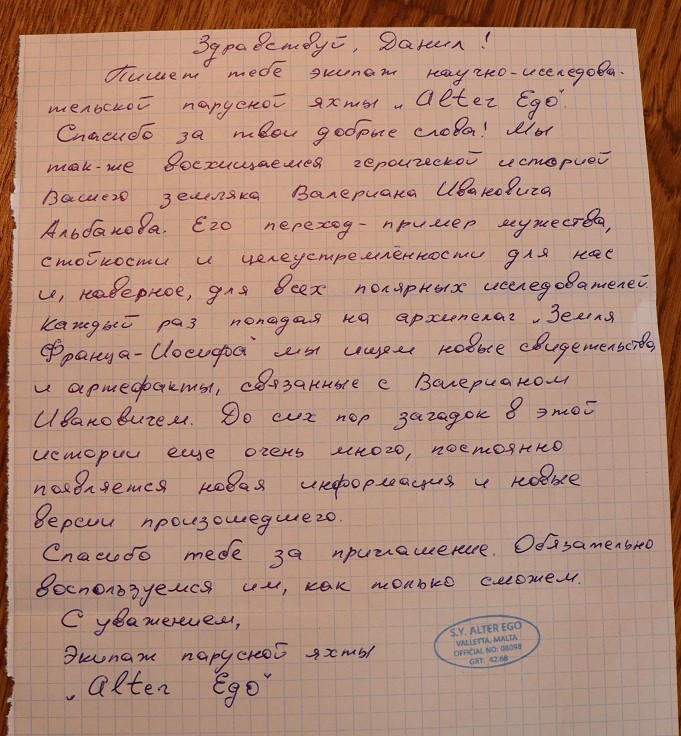 Здравствуй, Данил!
Пишет тебе экипаж научно-исследова-
тельской парусной яхты „Alter Ego“.
Спасибо за твои добрые слова! Мы
так-же восхищаемся героической историей
Вашего земляка Валериана Ивановича
Альбанова. Его переход - пример мужества,
стойкости и целеустремлённости для нас
и, наверное, для всех полярных исследователей.
Каждый раз попадая на архипелаг „Земля
Франца-Иосифа“ мы ищем новые свидетельства
и артефакты, связанные с Валерианом
Ивановичем. До сих пор загадок в этой
истории еще очень много, постоянно
появляется новая информация и новые
версии произошедшего.
Спасибо тебе за приглашение. Обязательно
воспользуемся им, как только сможем.
С уважением,
Экипаж парусной яхты
„Alter Ego“
S.Y. ALTER EGO
VALLETTA, MALTA
OFFICIAL NO: 08098
GRT: 42.68